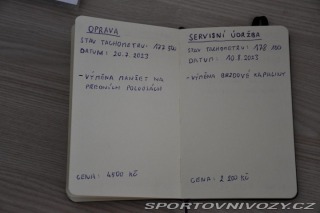 OPRAVA
STAV TACHOMETRU: 177
DATUM: 20.7.2023
- VÝMĚNA MANŽET NA
PŘEDNÍCH POLOOSÁCH
CENA: 4500 KČ
SERVISNÍ ÚDRŽBA
STAV TACHOMETRU: 178
DATUM: 10.8.2023
- VÝMĚNA BRZDOVÉ KAPALINY
CENA: 2 200 KČ
SPORTOVNIVOZY.CZ